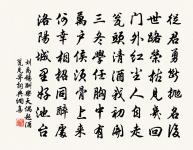 從君勇斷抛名後
世路榮枯見幾回
門外紅塵人自走
甕頭清酒我初開
三冬學任胸中有
萬戶侯須骨上來
何幸相招同醉處
洛陽城裏好池臺
劉禹錫酬樂天偶題酒
甕見寄